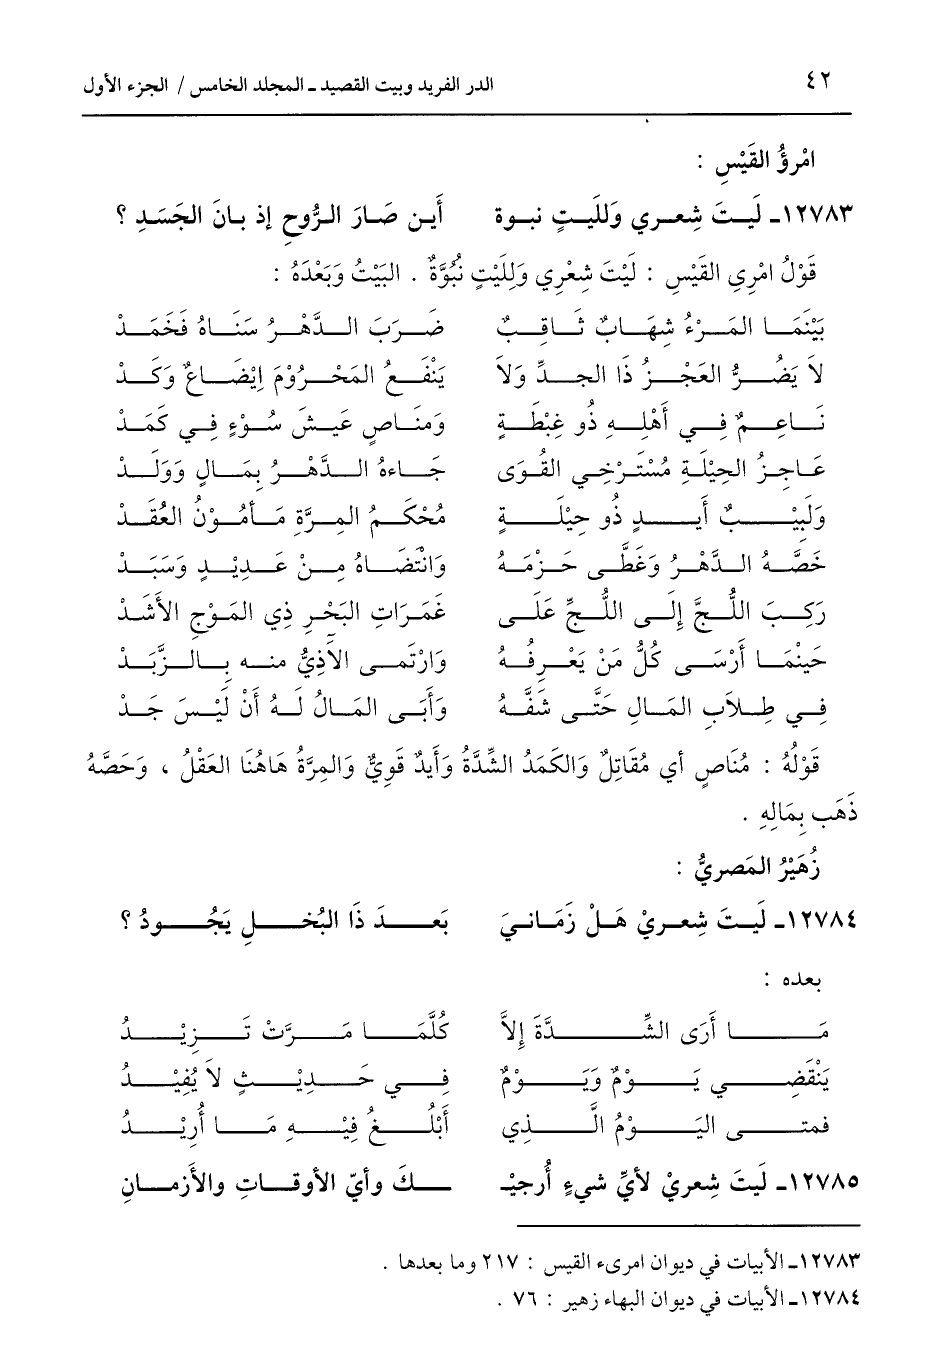 ٤٢ الدر الفريد وبيت القصيد ـ المجلد الخامس / الجزء الأول
امْرؤُ القَيْسِ :
١٢٧٨٣ـ لَيتَ شِعري وَللَيتٍ نبوة أَين صَارَ الرُّوحِ إذ بانَ الجَسَدِ ؟
قَوْلُ امْرِى القَيْسِ : لَيْتَ شِعْرِي وَلِلَيْتٍ نُبُوَّةٌ . البَيْتُ وَبَعْدَهُ :
بَيْنَمَا المَرْءُ شِهَابٌ ثَاقِبٌ ضَرَبَ الدَّهْرُ سَنَاهُ فَخَمَدْ
لاَ يَضُرُّ العَجْزُ ذَا الجدِّ وَلاَ يَنْفَعُ المَحْرُوْمَ إيْضَاعٌ وَكَدْ
نَاعِمٌ فِي أَهْلِهِ ذُو غِبْطَةٍ وَمنَاصٍ عَيشَ سُوْءٍ فِي كَمَدْ
عَاجِزُ الحِيْلَةِ مُسْتَرْخِي القُوَى جَاءهُ الدَّهْرُ بِمَالٍ وَوَلَدْ
وَلَبِيْبٌ أَيدٍ ذُو حِيْلَةٍ مُحْكَمُ المِرَّةِ مَأمُوْنُ العُقَدْ
خَصَّهُ الدَّهْرُ وَغَطَّى حَزْمَهُ وَانْتَضَاهُ مِنْ عَدِيْدٍ وَسَبَدْ
رَكِبَ اللُّجَّ إلَى اللُّجِّ عَلَى غَمَرَاتِ البَحْرِ ذِي المَوْجِ الأَشَدْ
حَيْثمَا أَرْسَى كُلُّ مَنْ يَعْرِفهُ وَارْتَمَى الآذِيُّ منه بِالزَّبَدْ
فِي طِلاَبِ المَالِ حَتَّى شَفَّهُ وَأَبَى المَالُ لَهُ أَنْ لَيْسَ جَدْ
قَوْلُهُ : مُنَاصٍ أي مُقَاتِلٌ وَالكَمَدُ الشِّدَّةُ وَأَيدٌ قَوِيٌّ وَالمِرَّةُ هَاهُنَا العَقْلُ ، وَحَصَّهُ
ذَهَبَ بِمَالِهِ .
زُهَيْرُ المَصريُّ :
١٢٧٨٤ـ لَيتَ شِعريْ هَلْ زَمَانيَ بَعدَ ذَا البُخلِ يَجُودُ ؟
بعده :
مَا أَرَى الشِّدَّةَ إلاَّ كُلَّمَا مَرَّتْ تَزِيْدُ
يَنْقَضِي يَوْمٌ وَيَوْمٌ فِي حَدِيْثٍ لاَ يُفِيْدُ
فمتى اليَوْمُ الَّذِي أَبْلُغُ فِيْهِ مَا أُرِيْدُ
١٢٧٨٥ـ لَيتَ شِعريْ لأيِّ شيءٍ أُرجيْـ ـكَ وأيّ الأوقاتِ والأَزمانِ
١٢٧٨٣ـ الأبيات في ديوان امرىء القيس : ٢١٧ وما بعدها .
١٢٧٨٤ـ الأبيات في ديوان البهاء زهير : ٧٦ .